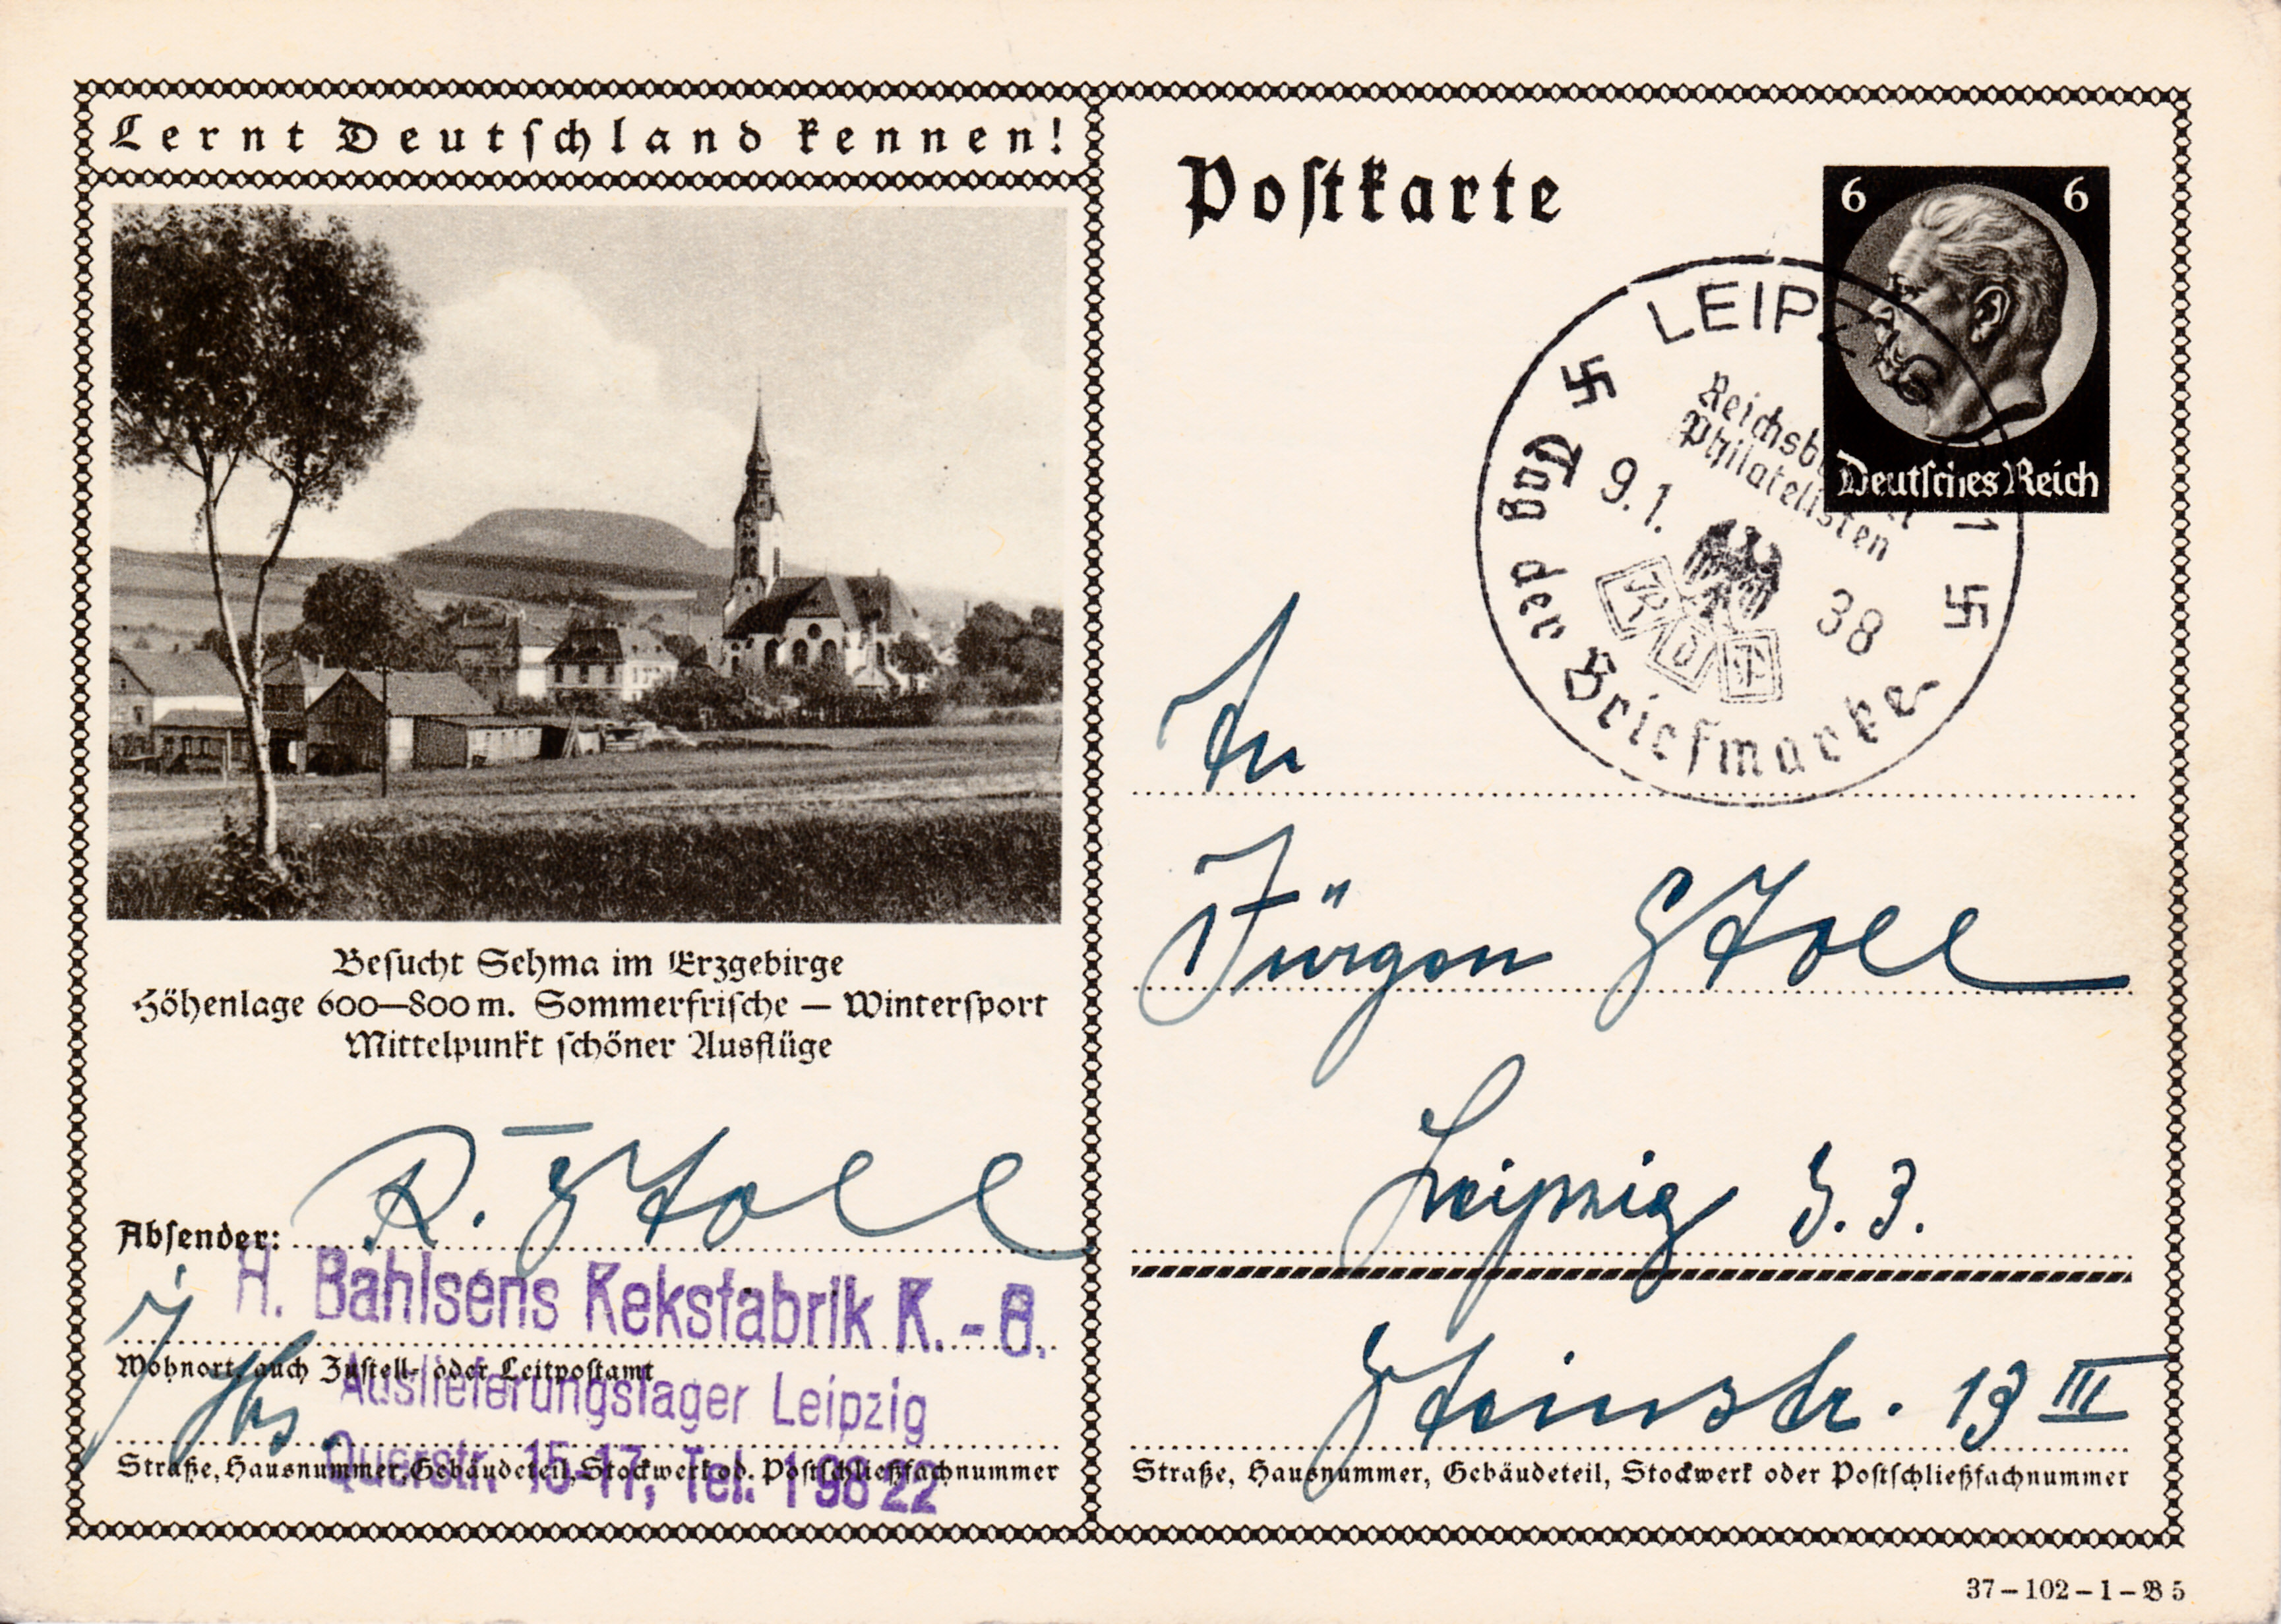 Lernt Deutschland kennen!
Postkarte
6 6
Deutsches Reich
LEIPZIG
Reichsb
Philatelisten
9.1. 38
1
Tag der Briefmarke
Besucht Sehma im Erzgebirge
Höhenlage 600—800 m. Sommerfrische — Wintersport
Mittelpunkt schöner Ausflüge
Absender: R. Stoll
H. Bahlsens Keksfabrik K.-G.
Wohnort, auch Zustell- oder Leitpostamt
Auslieferungslager Leipzig
Querstr. 15-17, Tel. 19822
Straße, Hausnummer, Gebäudeteil, Stockwerk od. Postschließfachnummer
An
Jürgen Stoll
Leipzig S. 3.
Steinstr. 13 III
Straße, Hausnummer, Gebäudeteil, Stockwerk oder Postschließfachnummer
37–102–1–B 5